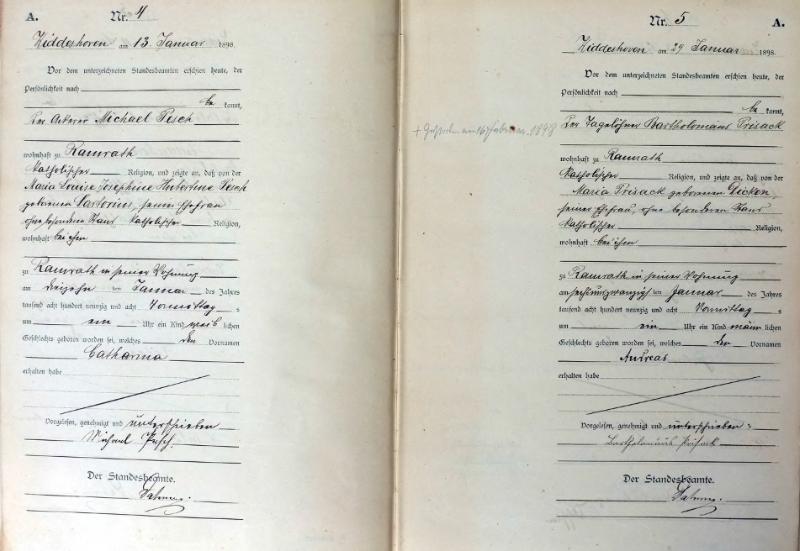 A. Nr. 4
Hiddeshoven am 13 Januar 1898.
Vor dem unterzeichneten Standesbeamten erschien heute, der
Persönlichkeit nach
be kannt,
Der Ackerer Michael Pesch
wohnhaft zu Ramrath
katholischer Religion, und zeigte an, daß von der
Maria Louise Josephine Hubertine Pesch
geborenen Sartorius, seiner Ehefrau
ohne besonderen Stand katholischer Religion,
wohnhaft bei ihm
zu Ramrath in seiner Wohnung
am dreizehn ten Januar des Jahres
tausend acht hundert neunzig und acht Vormittag s
um ein Uhr ein Kind weib lichen
Geschlechts geboren worden sei, welches den Vornamen
Catharina
erhalten habe
Vorgelesen, genehmigt und unterschrieben
Michael Pesch.
Der Standesbeamte.
Nr. 5 A.
Hiddeshoven am 29 Januar 1898.
Vor dem unterzeichneten Standesbeamten erschien heute, der
Persönlichkeit nach
be kannt,
+ Gestorben am 1898
Der Tagelöhner Bartholomäus Prisack
wohnhaft zu Ramrath
katholischer Religion, und zeigte an, daß von der
Maria Prisack geborenen Dicken,
seiner Ehefrau, ohne besonderen Stand
katholischer Religion,
wohnhaft bei ihm
zu Ramrath in seiner Wohnung
am sechsundzwanzigsten Januar des Jahres
tausend acht hundert neunzig und acht Vormittag s
um ein Uhr ein Kind männ lichen
Geschlechts geboren worden sei, welches den Vornamen
Andreas
erhalten habe
Vorgelesen, genehmigt und unterschrieben:
Bartholomäus Prisack
Der Standesbeamte.